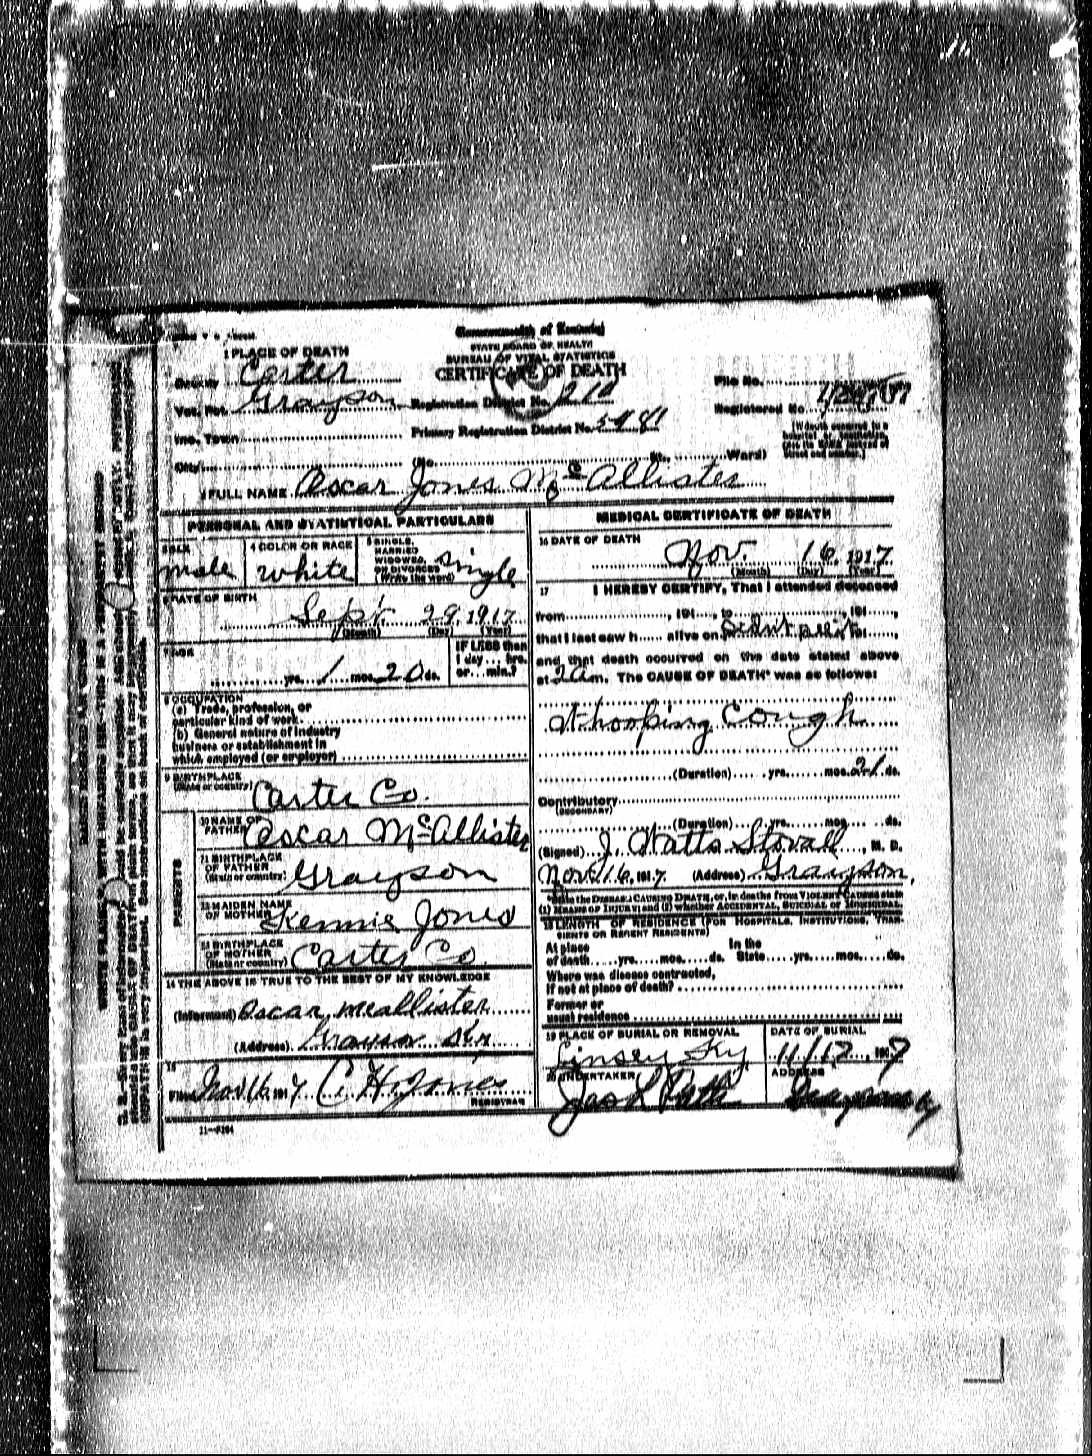 Commonwealth of Kentucky
STATE BOARD OF HEALTH
BUREAU OF VITAL STATISTICS
CERTIFICATE OF DEATH
1 PLACE OF DEATH
County Carter
Vot. Pct. Grayson
Registration District No. 210
File No.
Registered No.
Inc. Town
Primary Registration District No. 5481
City No. St. Ward)
2 FULL NAME Oscar Jones McAllister
PERSONAL AND STATISTICAL PARTICULARS
3 SEX male
4 COLOR OR RACE white
5 SINGLE, MARRIED WIDOWED, OR DIVORCED (Write the word) single
6 DATE OF BIRTH
Sept. 29, 1917
(Month) (Day) (Year)
7 AGE
yrs. 1 mos. 20 ds.
IF LESS than 1 day ... hrs. or ... min.?
8 OCCUPATION
(a) Trade, profession, or
particular kind of work
(b) General nature of industry
business or establishment in
which employed (or employer)
9 BIRTHPLACE
(State or country) Carter Co.
PARENTS
10 NAME OF FATHER Oscar McAllister
11 BIRTHPLACE OF FATHER (State or country) Grayson
12 MAIDEN NAME OF MOTHER Kennie Jones
13 BIRTHPLACE OF MOTHER (State or country) Carter Co.
14 THE ABOVE IS TRUE TO THE BEST OF MY KNOWLEDGE
(Informant) Oscar McAllister
(Address) Grayson Ky
15
Filed Nov 16, 1917 C. H. Jones
REGISTRAR
11-3184
MEDICAL CERTIFICATE OF DEATH
16 DATE OF DEATH
Nov. 16, 1917
(Month) (Day) (Year)
17 I HEREBY CERTIFY, That I attended deceased
from , 191 , to , 191 ,
that I last saw h alive on
and that death occurred on the date stated above
at 2 a m. The CAUSE OF DEATH* was as follows:
Whooping Cough
(Duration) yrs. mos. 21 ds.
Contributory
(SECONDARY)
(Duration) yrs. mos. ds.
(Signed) J. Watts Stovall, M. D.
Nov. 16, 1917. (Address) Grayson,
*State the DISEASE CAUSING DEATH, or, in deaths from VIOLENT CAUSES state
(1) MEANS OF INJURY and (2) whether ACCIDENTAL, SUICIDAL or HOMICIDAL
18 LENGTH OF RESIDENCE (FOR HOSPITALS, INSTITUTIONS, TRANSIENTS OR RECENT RESIDENTS)
At place of death yrs. mos. ds. In the State yrs. mos. ds.
Where was disease contracted,
if not at place of death?
Former or
usual residence
19 PLACE OF BURIAL OR REMOVAL
Linsey Ky
DATE OF BURIAL
11/17, 1917
20 UNDERTAKER
ADDRESS
Grayson Ky